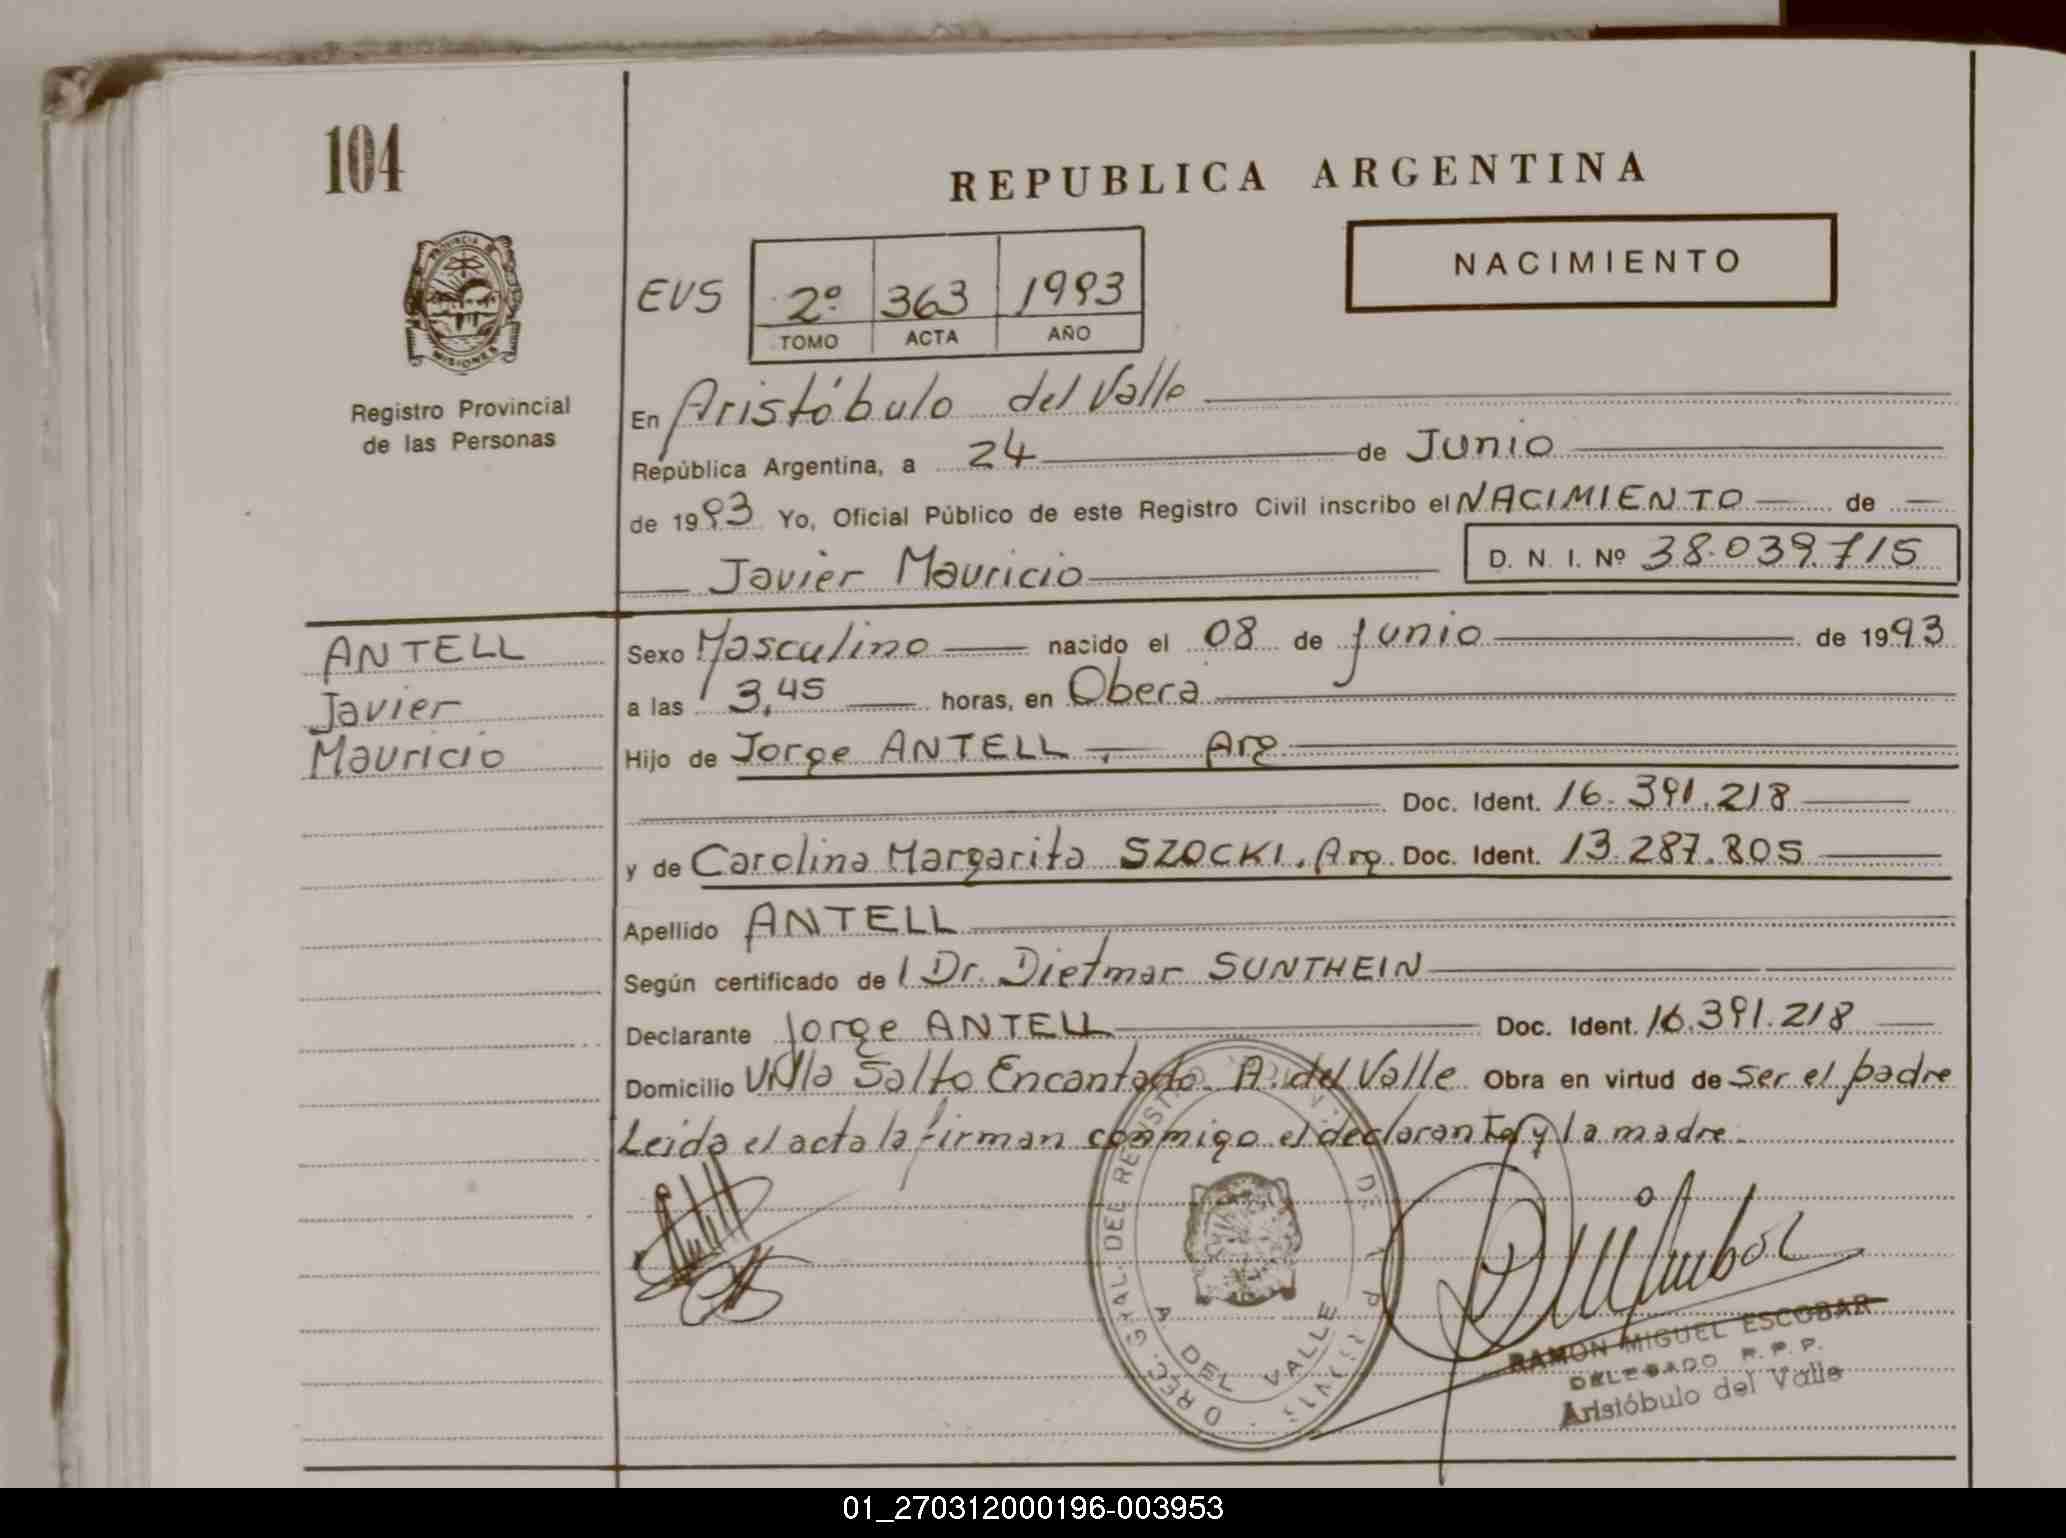 104
REPUBLICA ARGENTINA
PROVINCIA DE
MISIONES
Registro Provincial
de las Personas
NACIMIENTO
EVS 2º 363 1993
TOMO ACTA AÑO
En Aristóbulo del Valle
República Argentina, a 24 de Junio
de 1993 Yo, Oficial Público de este Registro Civil inscribo el NACIMIENTO de
Javier Mauricio D. N. I. Nº 38.039.715
ANTELL
Javier
Mauricio
Sexo Masculino nacido el 08 de junio de 1993
a las 3,45 horas, en Obera
Hijo de Jorge ANTELL, Arg
Doc. Ident. 16.391.218
y de Carolina Margarita SZOCKI. Arg. Doc. Ident. 13.287.805
Apellido ANTELL
Según certificado de l Dr. Dietmar SUNTHEIN
Declarante Jorge ANTELL Doc. Ident. 16.391.218
Domicilio Villa Salto Encantado A. del Valle Obra en virtud de ser el padre
Leida el acta la firman conmigo el declarante y la madre
DIREC. GRAL. DEL REGISTRO
A. DEL VALLE
RAMON MIGUEL ESCOBAR
DELEGADO R. P. P.
Aristóbulo del Valle
01_270312000196-003953